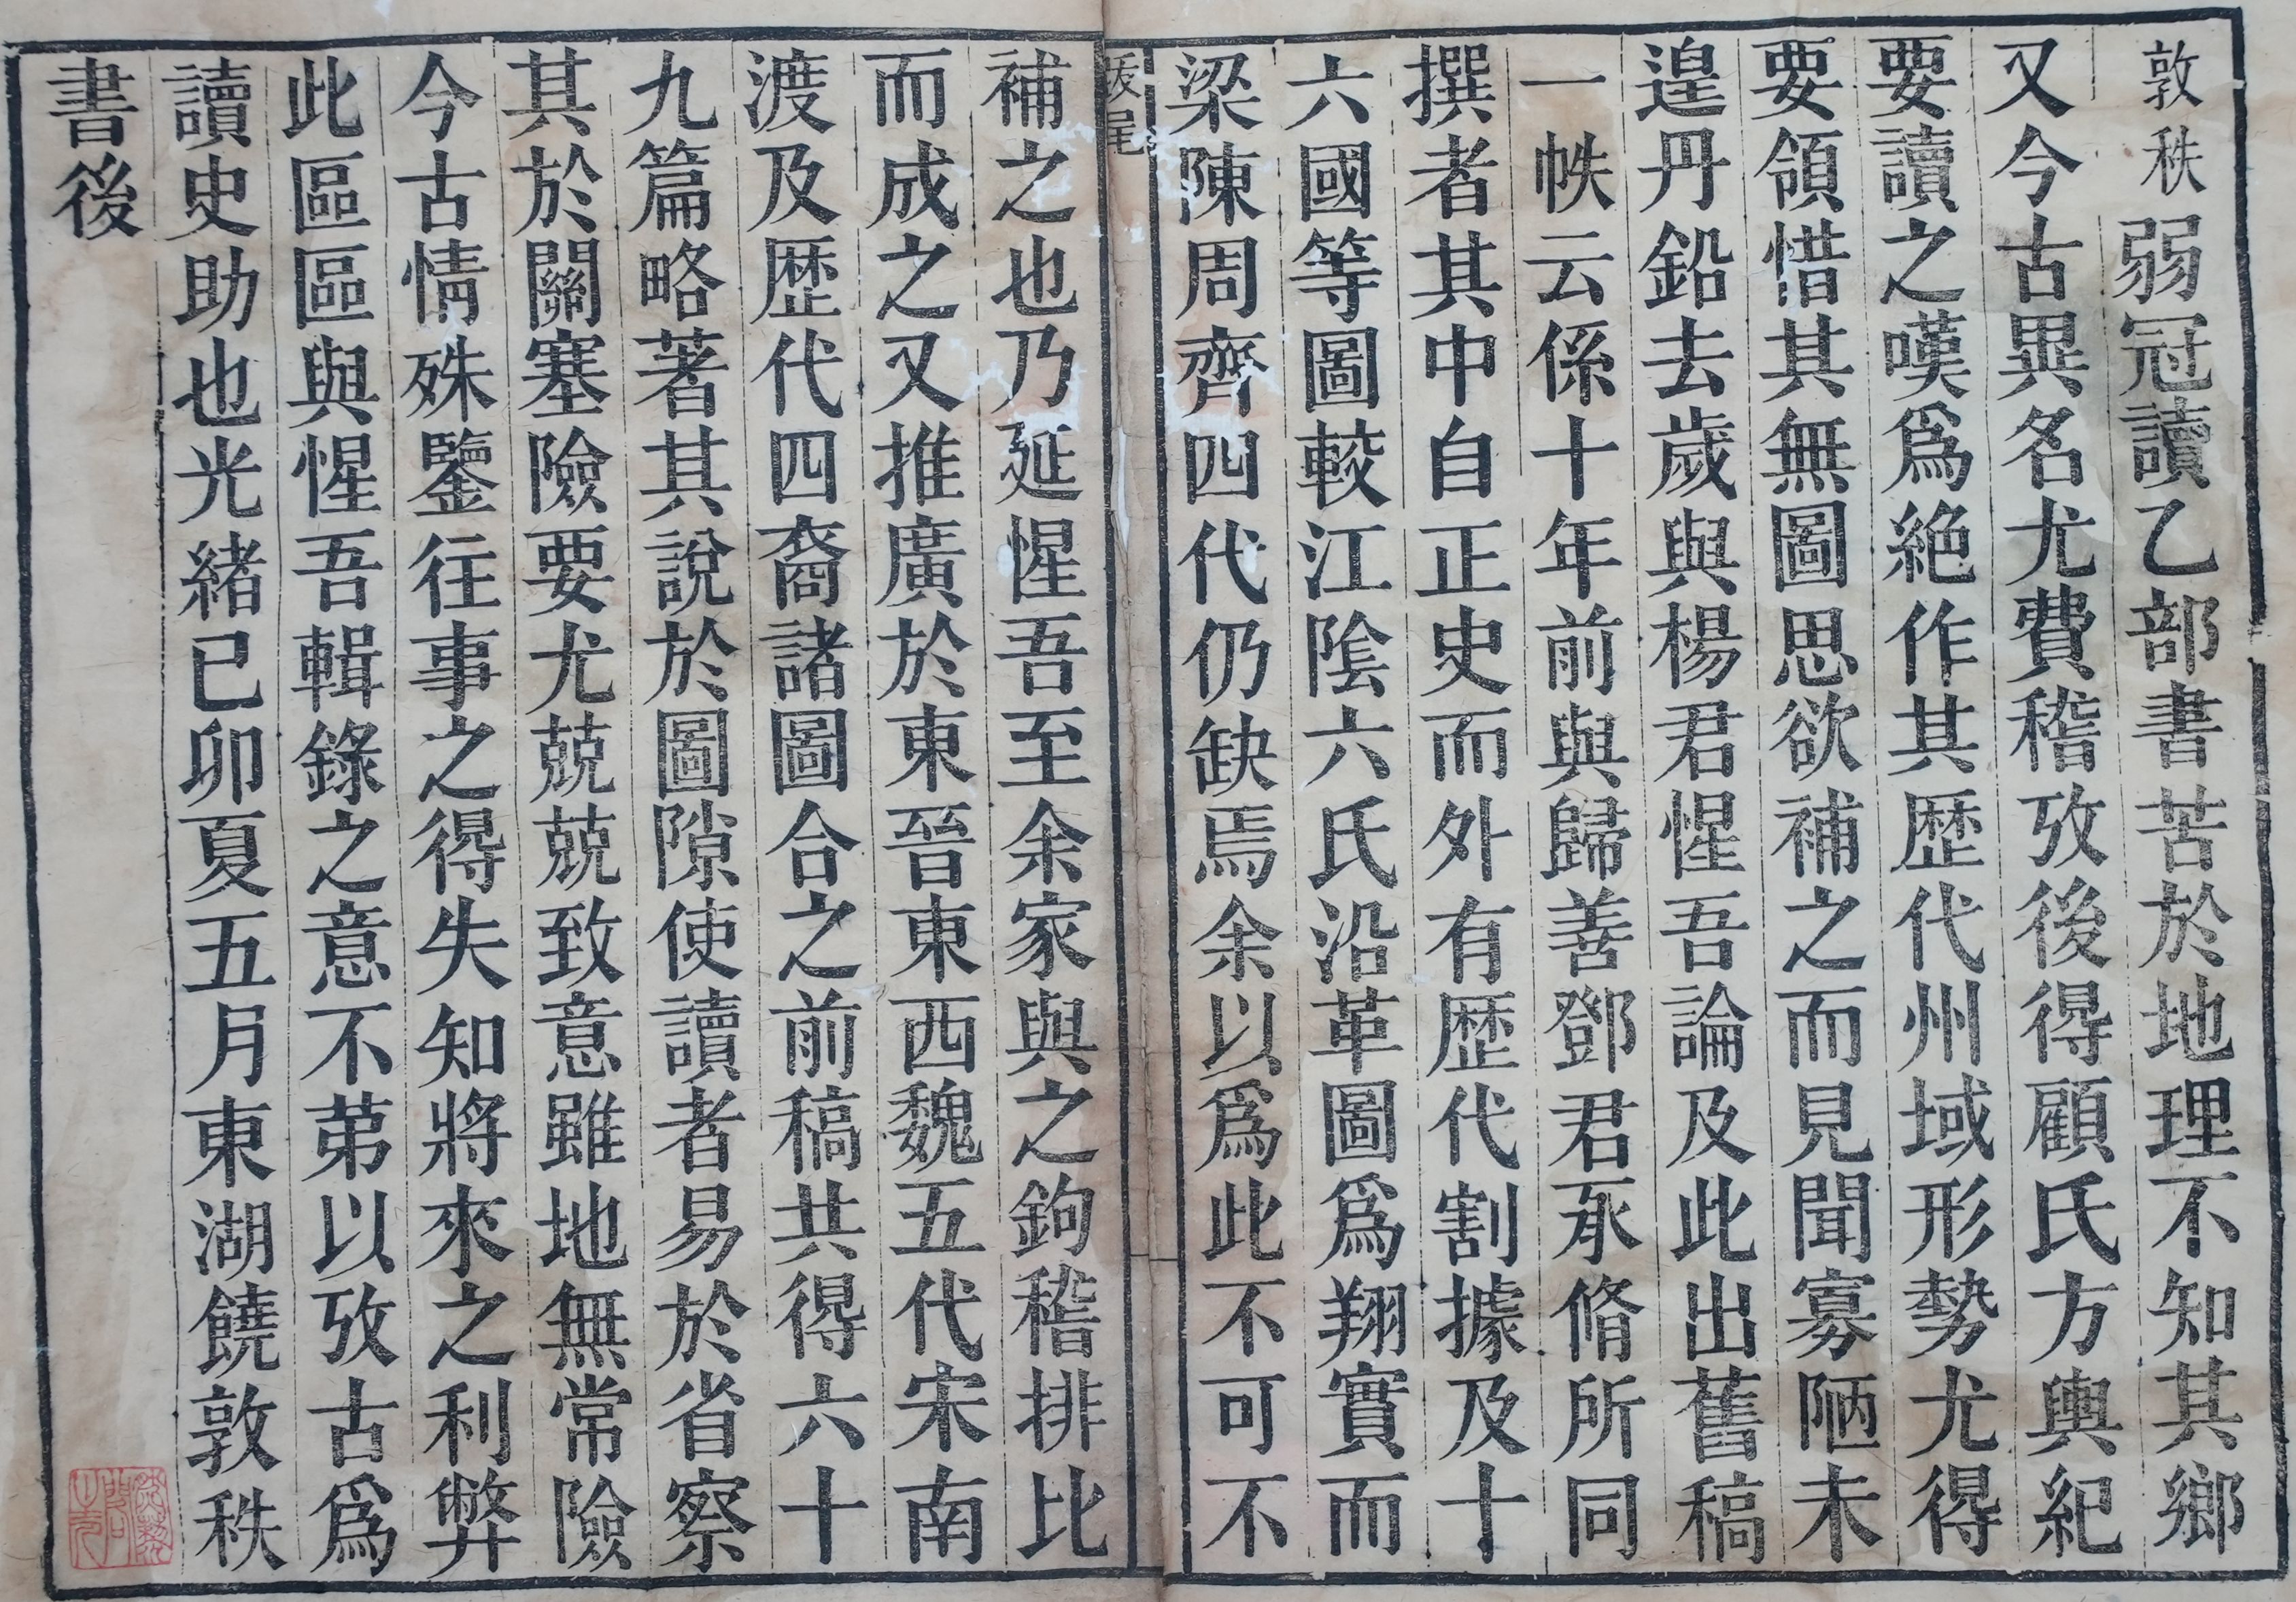 敦秩弱冠讀乙部書苦於地理不知其鄉
又今古異名尤費稽攷後得顧氏方輿紀
要讀之嘆爲絶作其歷代州域形勢尤得
要領惜其無圖思欲補之而見聞寡陋未
遑丹鉛去歲與楊君惺吾論及此出舊稿
一帙云係十年前與歸善鄧君承脩所同
撰者其中自正史而外有歷代割據及十
六國等圖較江陰六氏沿革圖爲翔實而
梁陳周齊四代仍缺焉余以爲此不可不
跋尾
補之也乃延惺吾至余家與之鉤稽排比
而成之又推廣於東晉東西魏五代宋南
渡及歷代四裔諸圖合之前稿共得六十
九篇略著其說於圖隙使讀者易於省察
其於關塞險要尤兢兢致意雖地無常險
今古情殊鑒往事之得失知將來之利弊
此區區與惺吾輯錄之意不苐以攷古爲
讀史助也光緒己卯夏五月東湖饒敦秩
書後